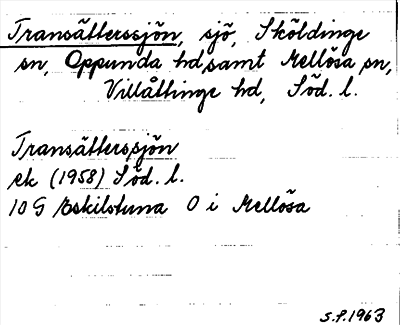 Transätterssjön, sjö, Sköldinge
sn, Oppunda hd, samt Mellösa sn,
Villåttinge hd, Söd. l.
Transätterssjön
ek (1958) Söd. l.
10 G Eskilstuna O i Mellösa
S.P. 1963